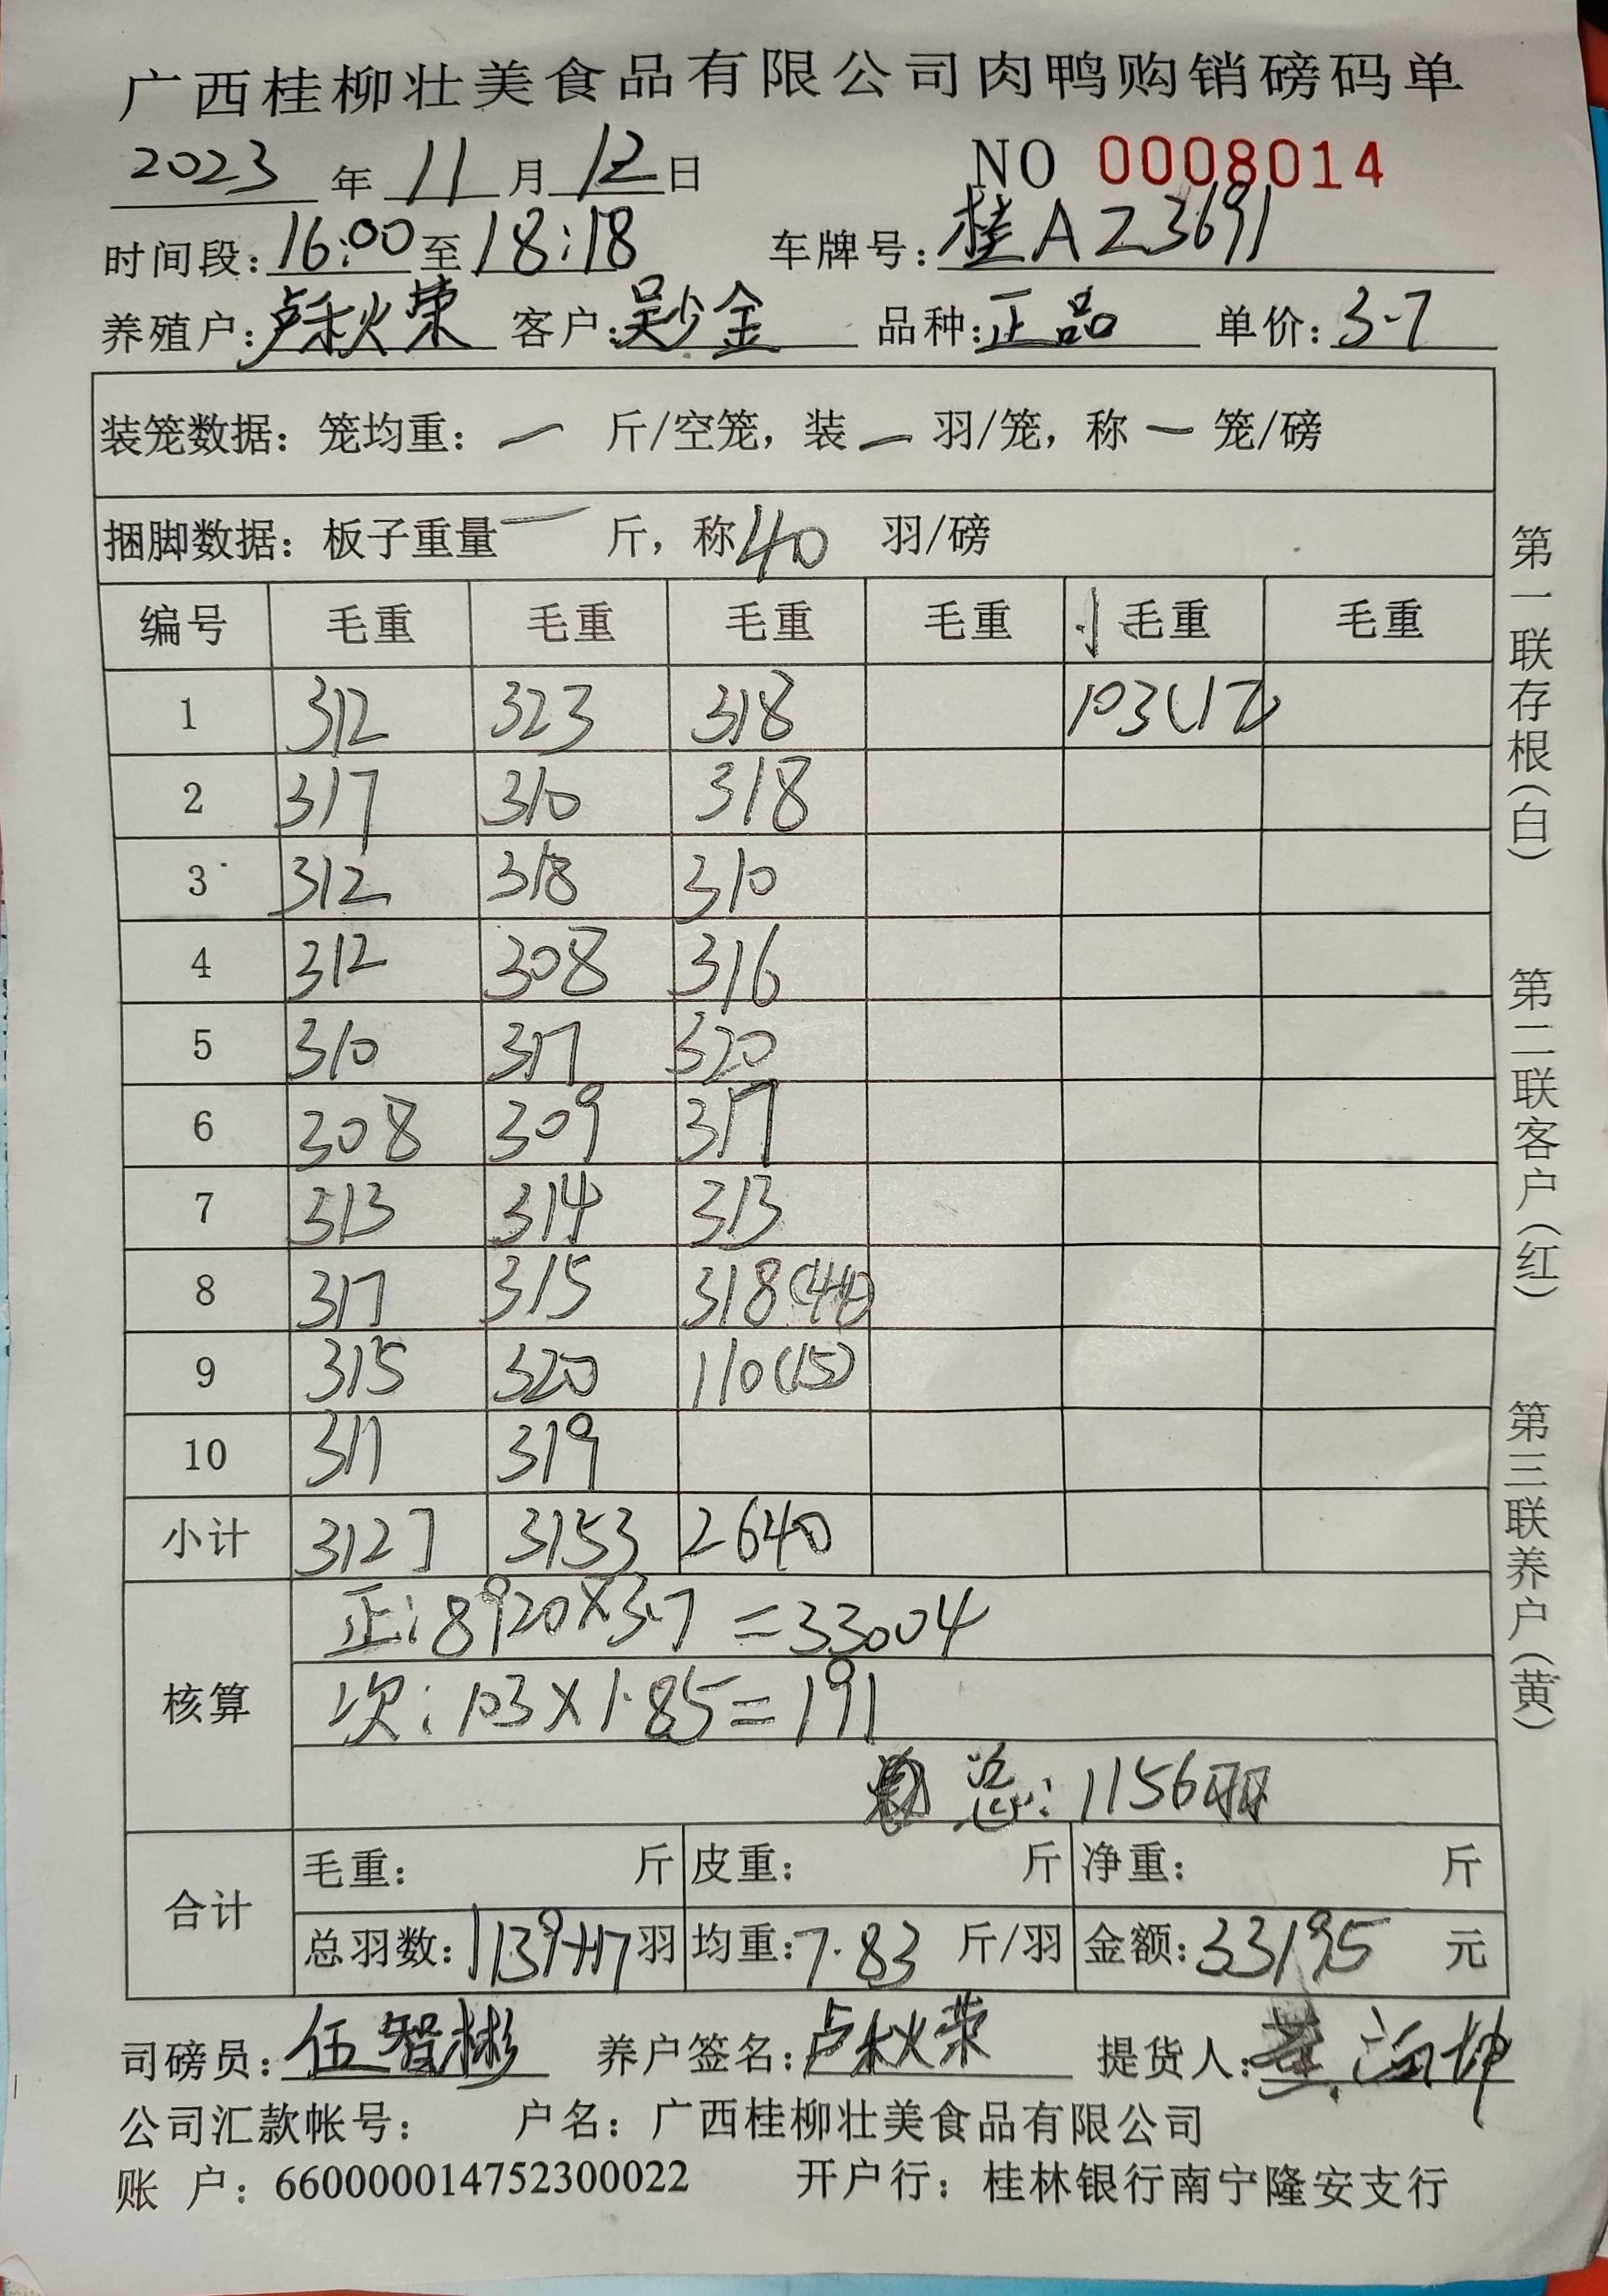 广西桂柳壮美食品有限公司肉鸭购销磅码单
2023年11月12日 NO 0008014
时间段:16:00至18:18 车牌号:桂AZ3691
养殖户:卢秋荣 客户:吴少金 品种:正品 单价:3.7
装笼数据: 笼均重: 一 斤/空笼, 装 一 羽/笼, 称 一 笼/磅
捆脚数据: 板子重量 一 斤, 称40 羽/磅
编号 毛重 毛重 毛重 毛重 小 毛重 毛重
1 312 323 318 103(17)
2 317 310 318
3 312 318 310
4 312 308 316
5 310 317 320
6 308 309 317
7 313 314 313
8 317 315 318(44)
9 315 320 110(15)
10 311 319
小计 3127 3153 2640
核算
正:8920×3.7=33004
次:103×1.85=191
总:1156羽
合计
毛重: 斤 皮重: 斤 净重: 斤
总羽数:1139+17羽 均重:7.83 斤/羽 金额:33195 元
司磅员:伍智彬 养户签名:卢秋荣 提货人:
公司汇款帐号: 户名: 广西桂柳壮美食品有限公司
账 户: 660000014752300022 开户行: 桂林银行南宁隆安支行
第一联存根(白) 第二联客户(红) 第三联养户(黄)